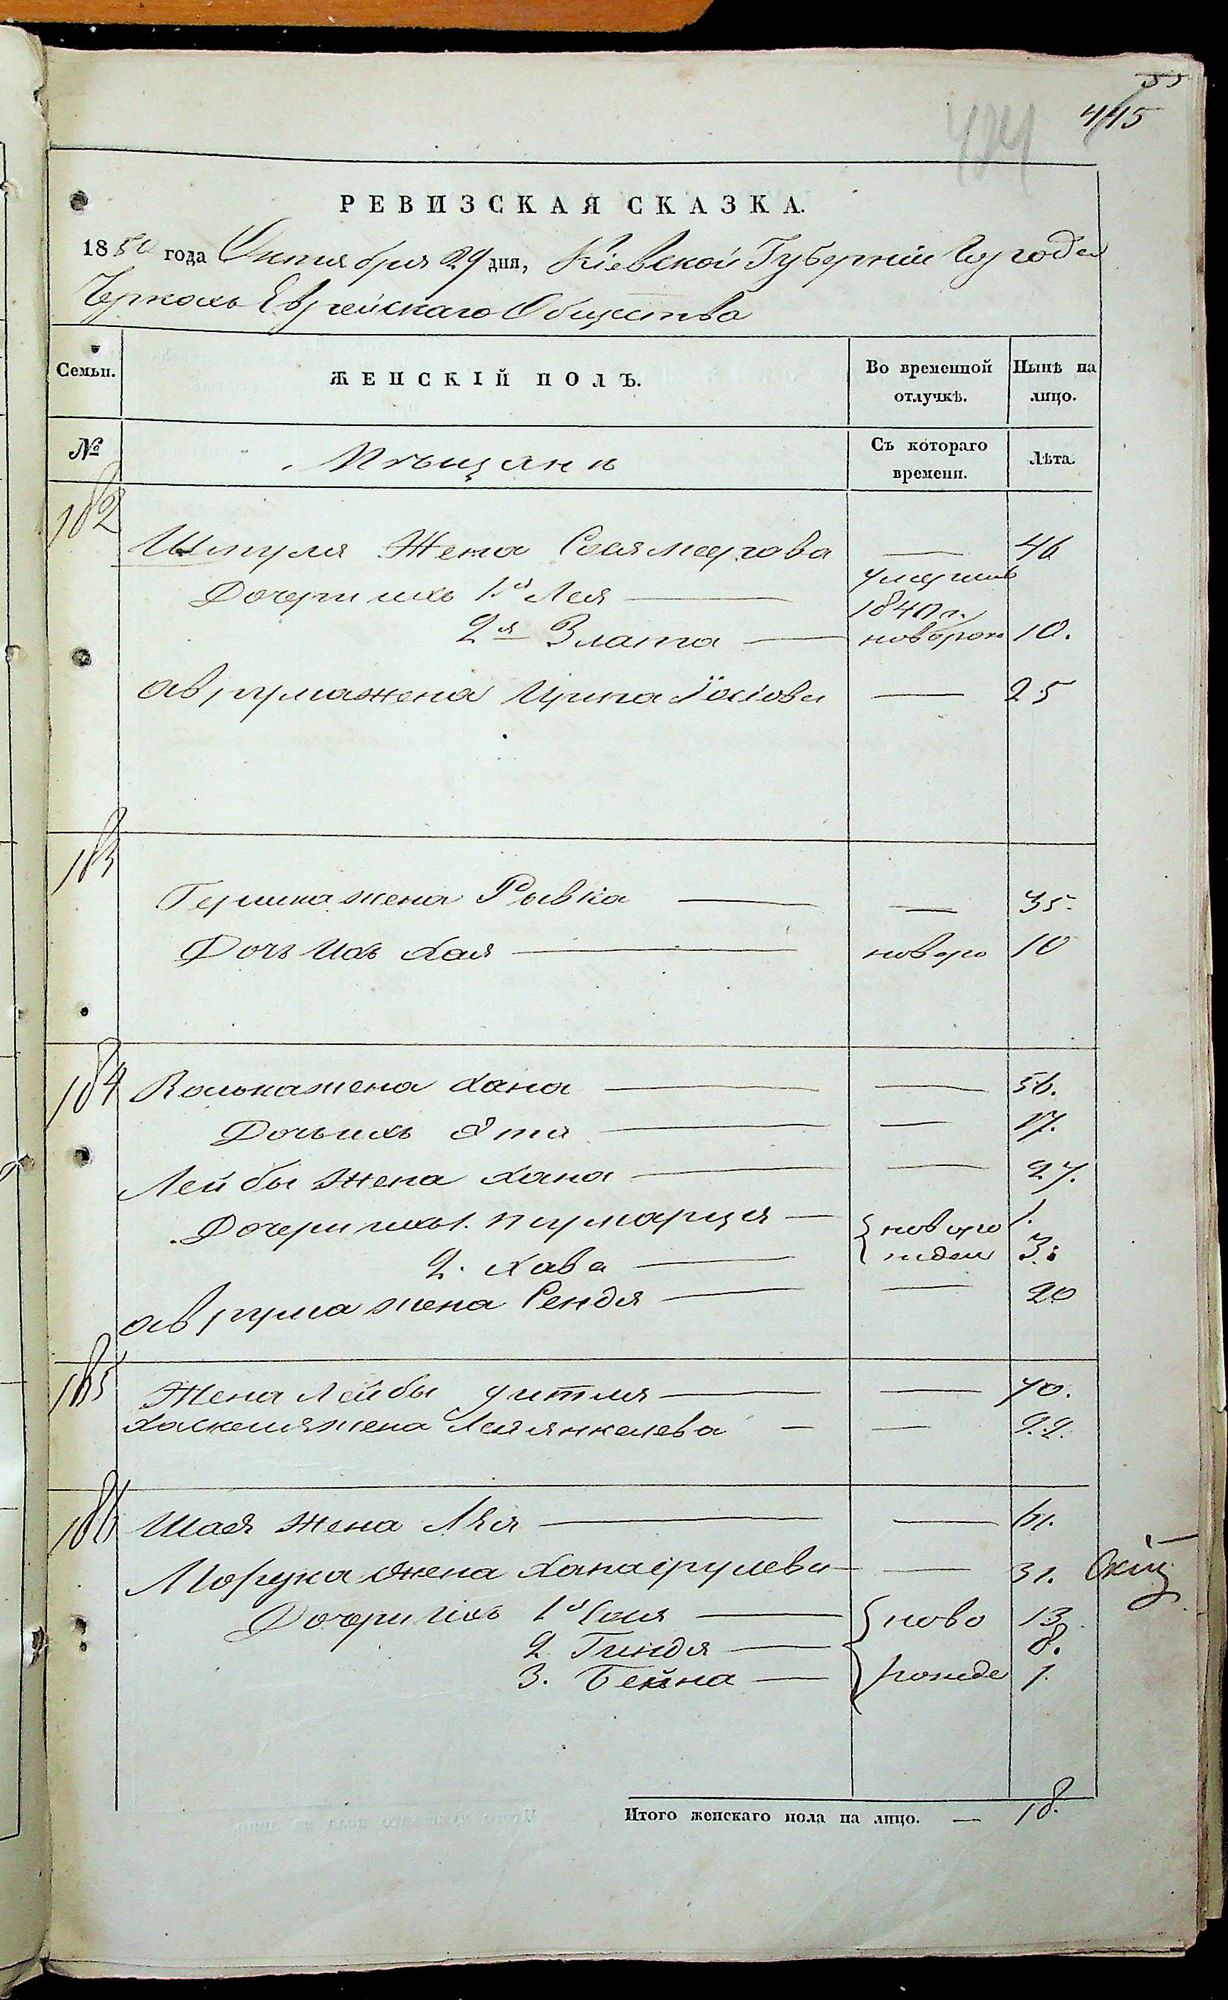 55
445
424
РЕВИЗСКАЯ СКАЗКА.
1850 года Октября 29 дня, Кіевской Губерніи Города
Черкась Еврейскаго Общества
Семьи. ЖЕНСКІЙ ПОЛЪ. Во временной отлучкѣ. Нынѣ на лицо.
№ Мѣщане Съ котораго времени. Лѣта.
182
Шмуля Жена Сося — 46
Дочери ихъ 1я Лея — умерла 1840 г.
2я Злата — новорож 10.
Аврума жена Ципа Іосіова — 25
183
Гершка жена Рывка — — 35.
Дочь Ихъ Хая — новоро 10
184
Волька жена Хана — — 56.
Дочь ихъ Эта — — 17.
Лейбы Жена Хана — — 27.
Дочери ихъ 1. — { новоро 1.
2. Хава — { жден 3.
Аврума жена Сендя — — 20
185
Жена Лейбы — — 40.
Хаскеля жена Лея Янкелева — — 22.
186
Шая Жена Лея — — 61.
Мордка Жена Хана Срулева — — 31.
Дочери Ихъ 1я — { ново 13
2. Гиндя — 8.
3. Бейна — { рожде 1.
Итого женскаго пола на лицо. — 18.